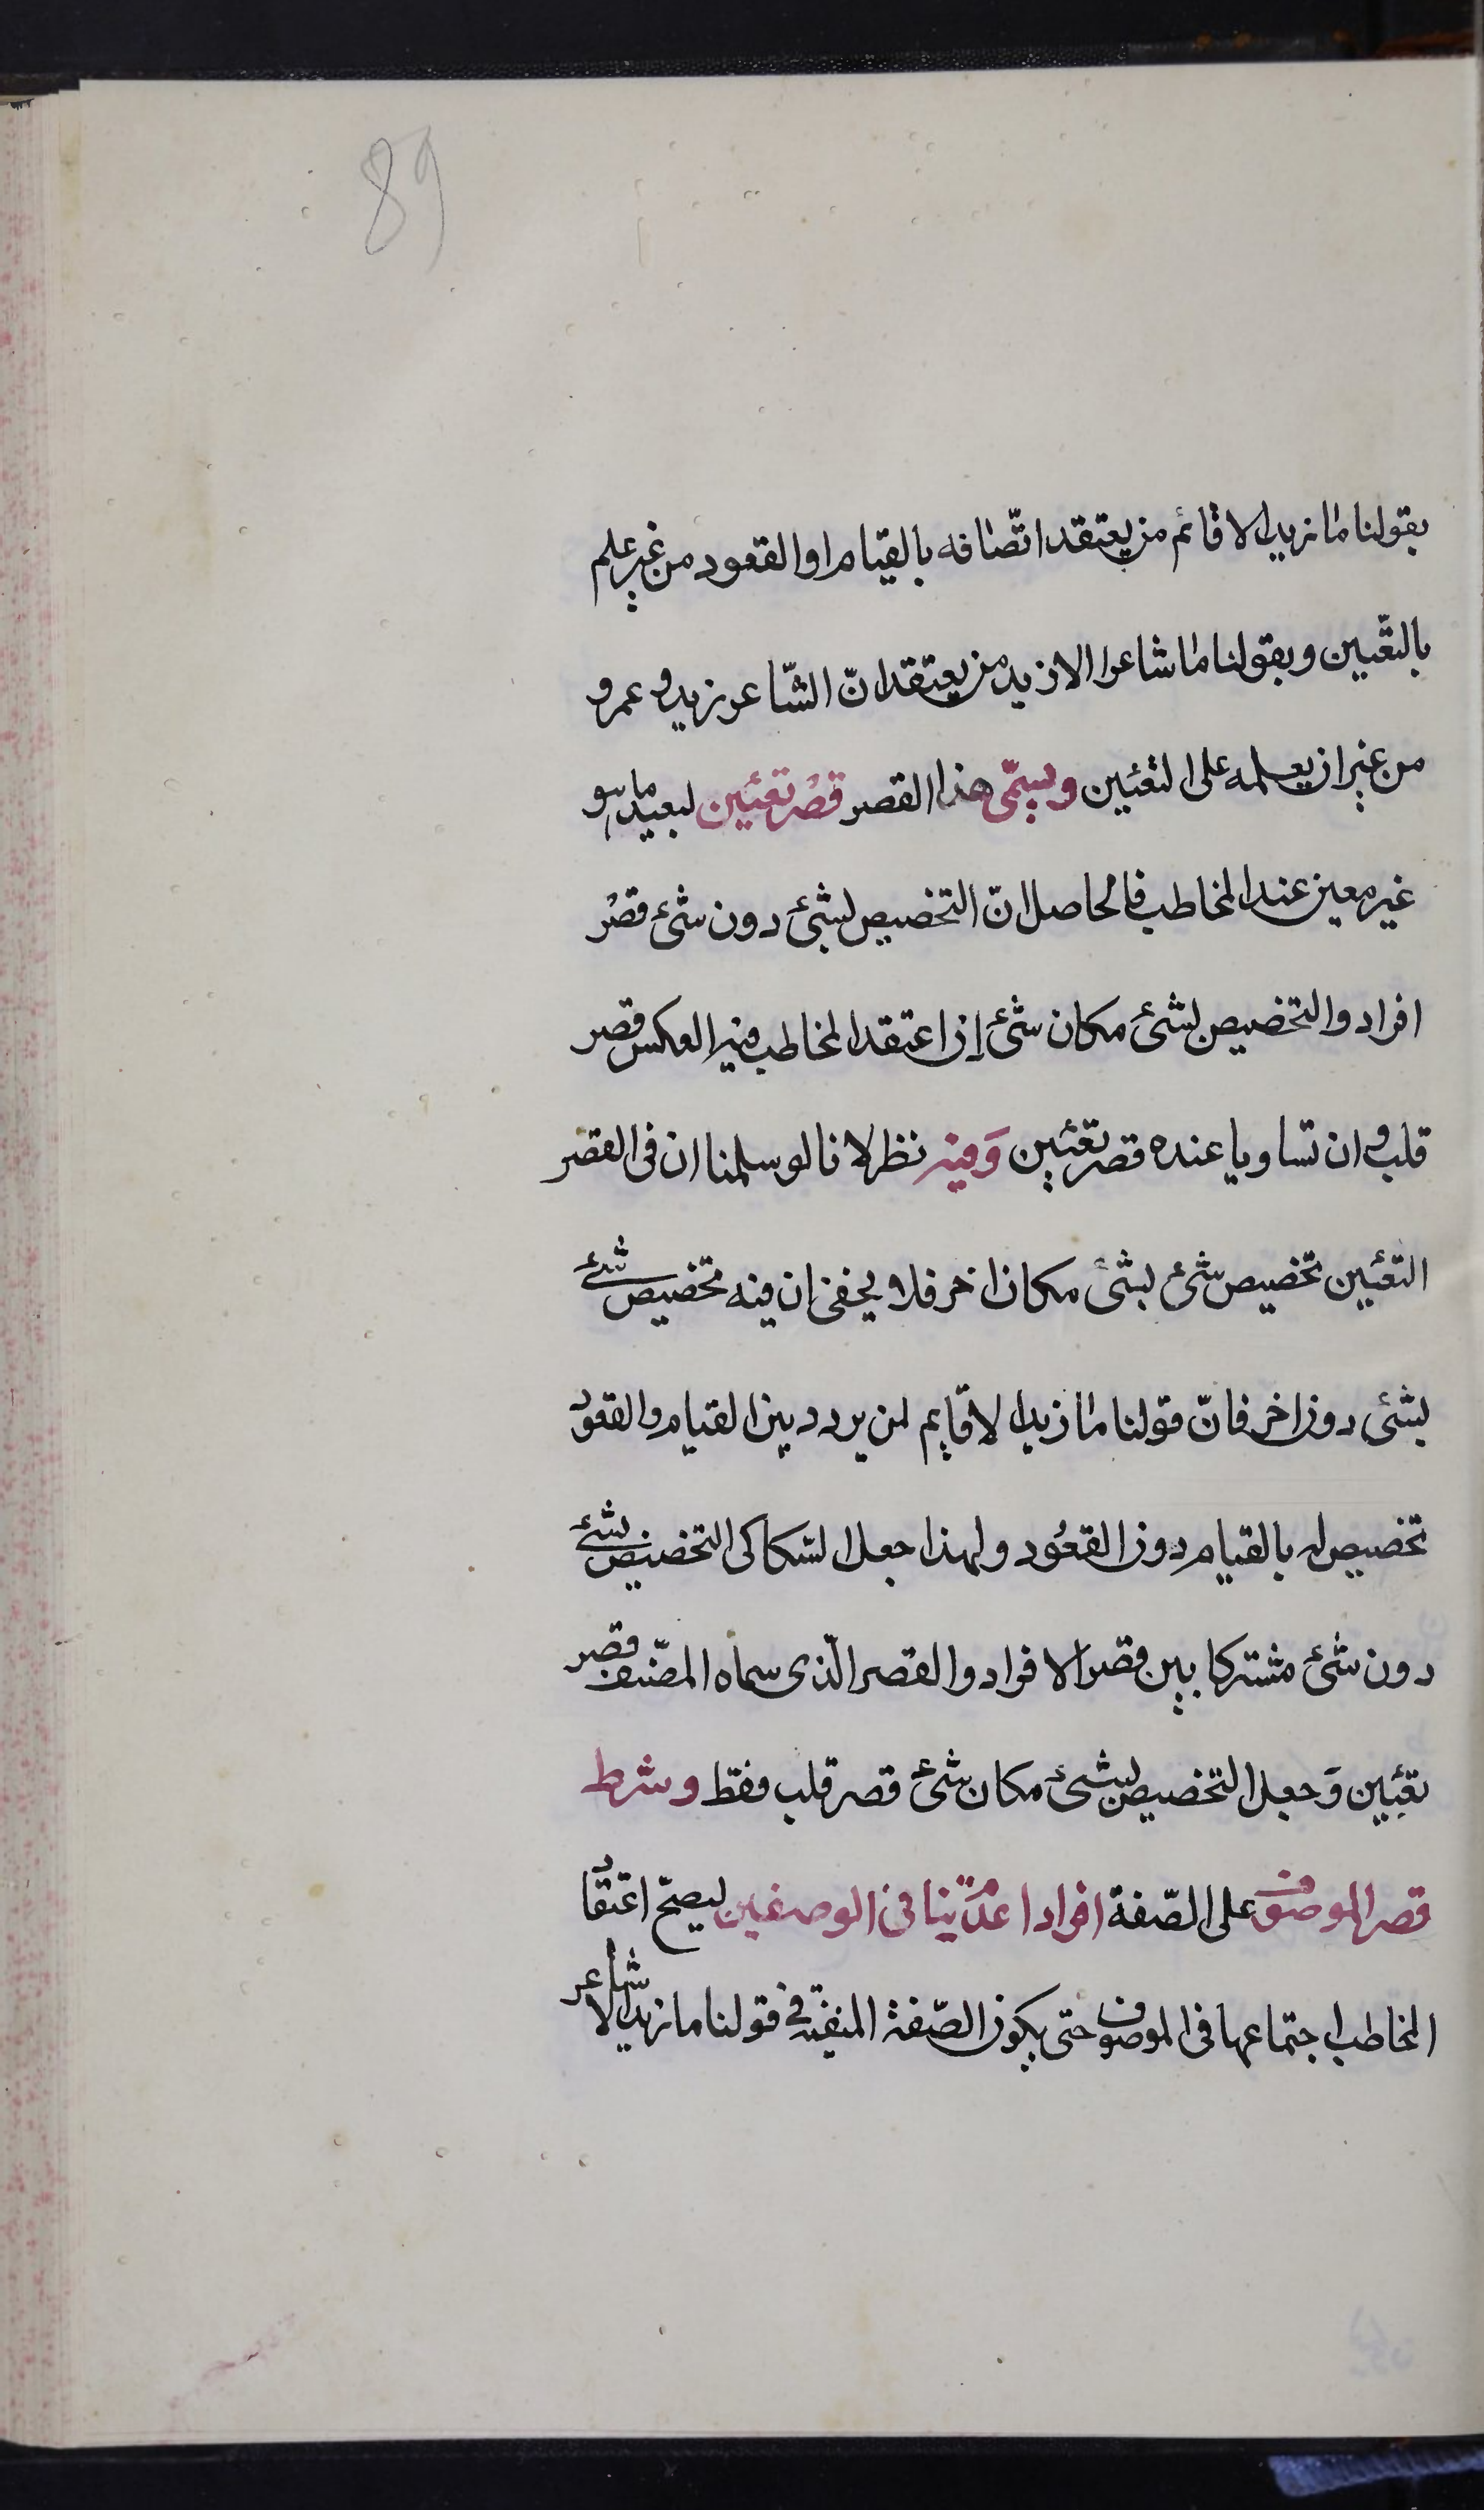 89
بقولنا ما زيد الا قائم من يعتقد اتّصافه بالقيام او القعود من غير علم
بالتّعيين وبقولنا ما شاعر الا زيد من يعتقد انّ الشّاعر زيد او عمرو
من غير ان يعلمه على التعيين ويسمّى هذا القصر قصر تعيين لتعيينه ما هو
غير معين عند المخاطب فالحاصل انّ التخصيص لشئ دون شئ قصر
افراد والتخصيص لشئ مكان شئ إن اعتقد المخاطب فيه العكس قصر
قلب وان تساويا عنده قصر تعيين وَفيه نظر لانا لو سلمنا ان فى القصر
التعيين تخصيص شئ لشئ مكان اخر فلا يخفى ان فيه تخصيص شئ
بشئ دون اخر فانّ قولنا ما زيد الا قايم لمن يردد بين القيام والقعود
تخصيص له بالقيام دون القعُود ولهذا جعل السّكاكى التخصيص بشئ
دون شئ مشتركا بين قصر الافراد والقصر الّذى سماه المصّنف قصر
تعيين وَجعل التخصيص بشئ مكان شئ قصر قلب فقط وشرط
قصر الموصوف على الصّفة افرادا عدم تنافى الوصفين ليصحّ اعتقاد
المخاطب اجتماعهما فى الموصوف حتى يكون الصّفة المنفية فى قولنا ما زيد الا شاعر